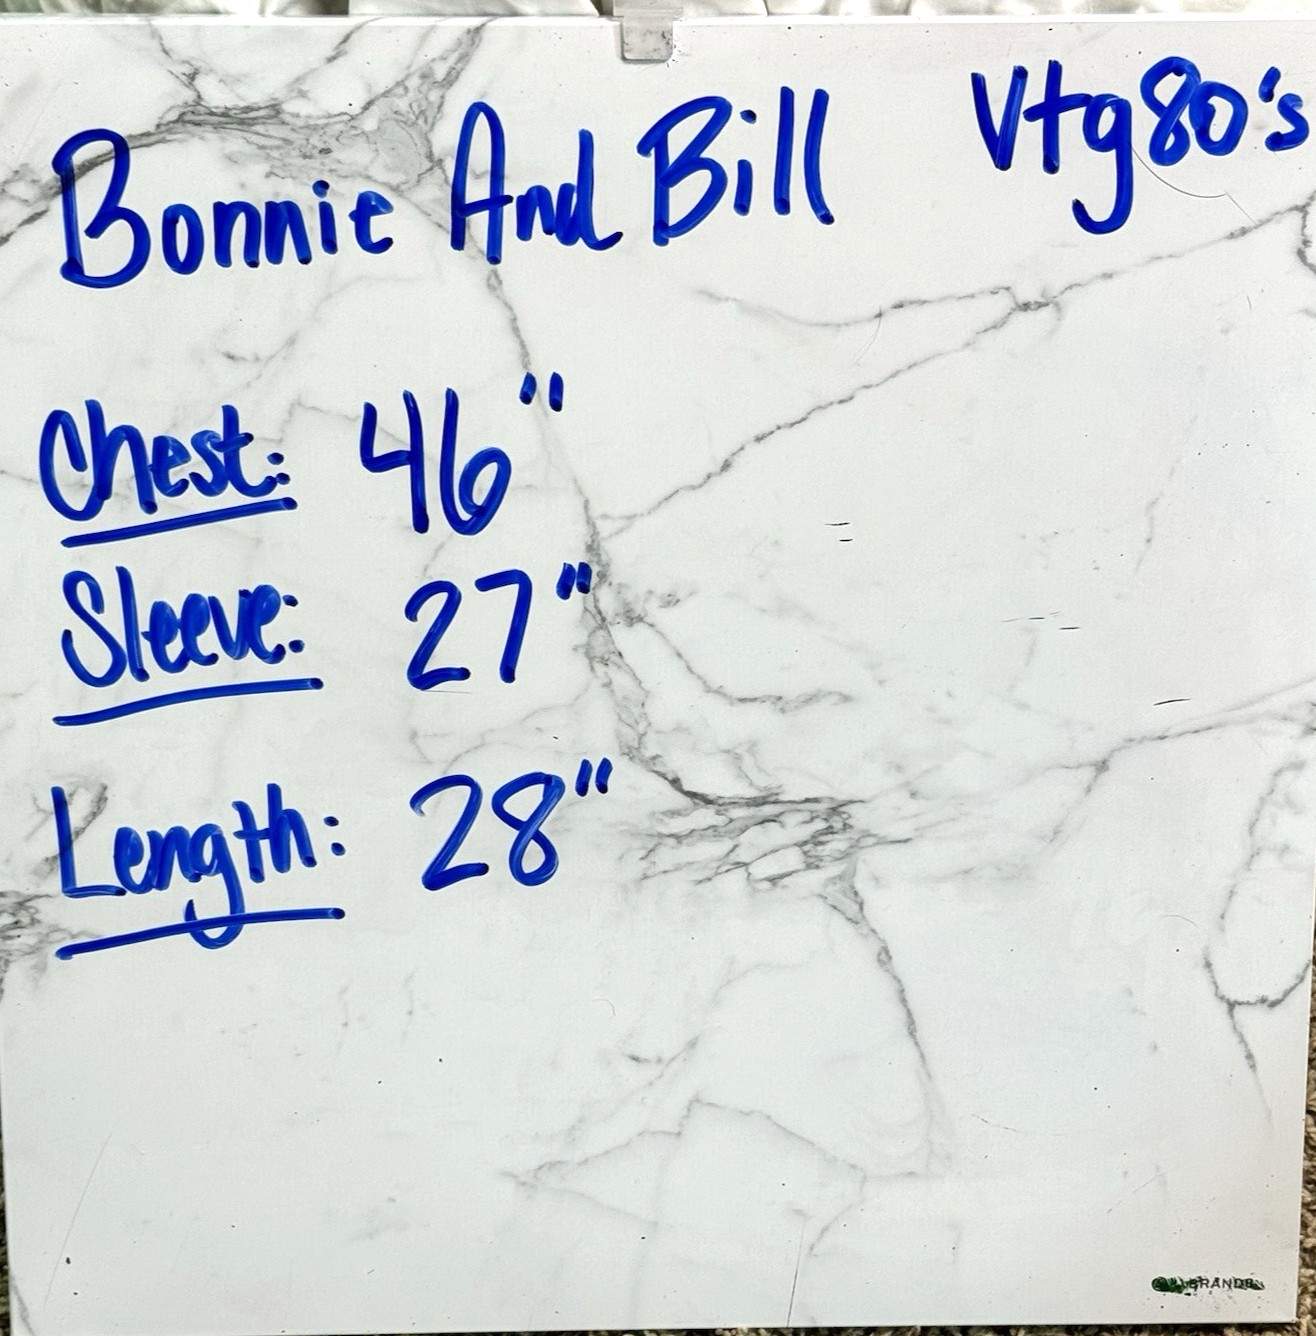 Bonnie And Bill Vtg 80's
Chest: 46"
Sleeve: 27"
Length: 28"
BRANDS